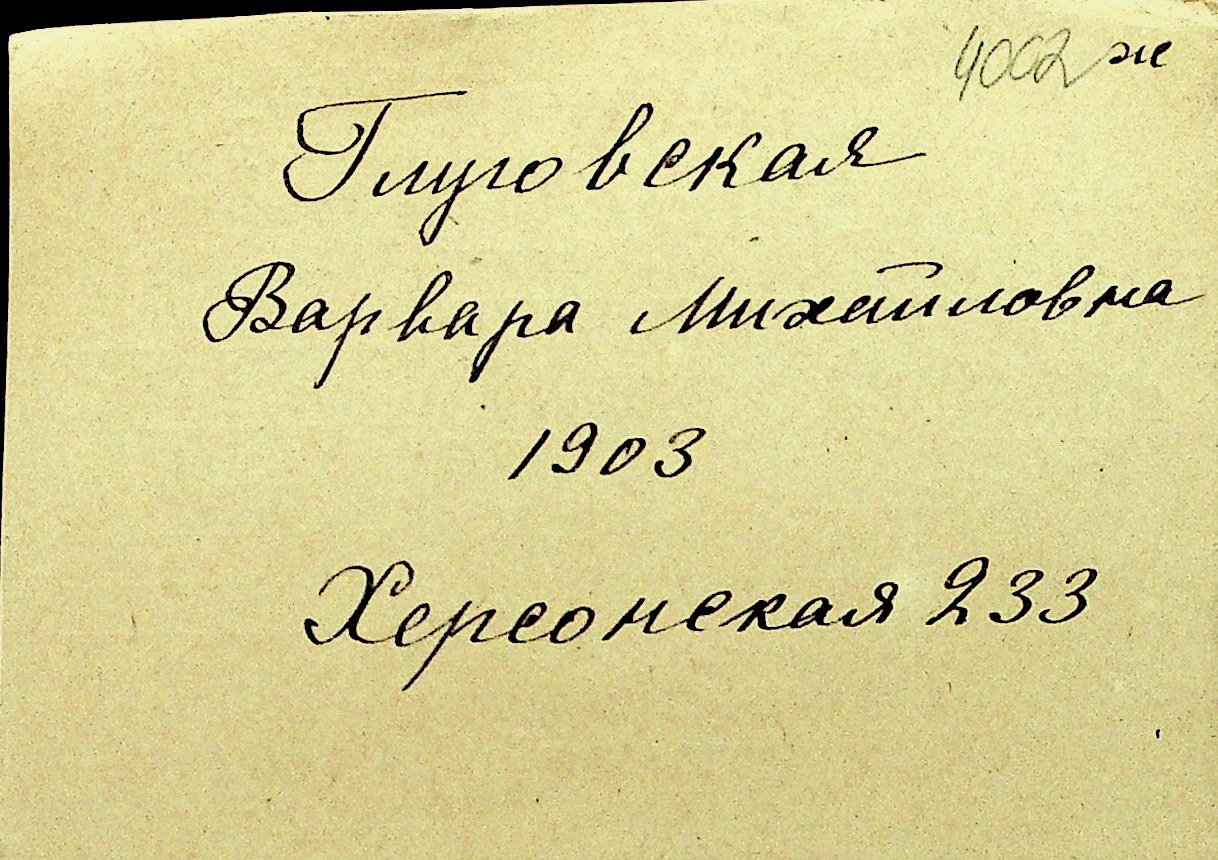 4002 ж
Глуговская
Варвара Михайловна
1903
Херсонская 233